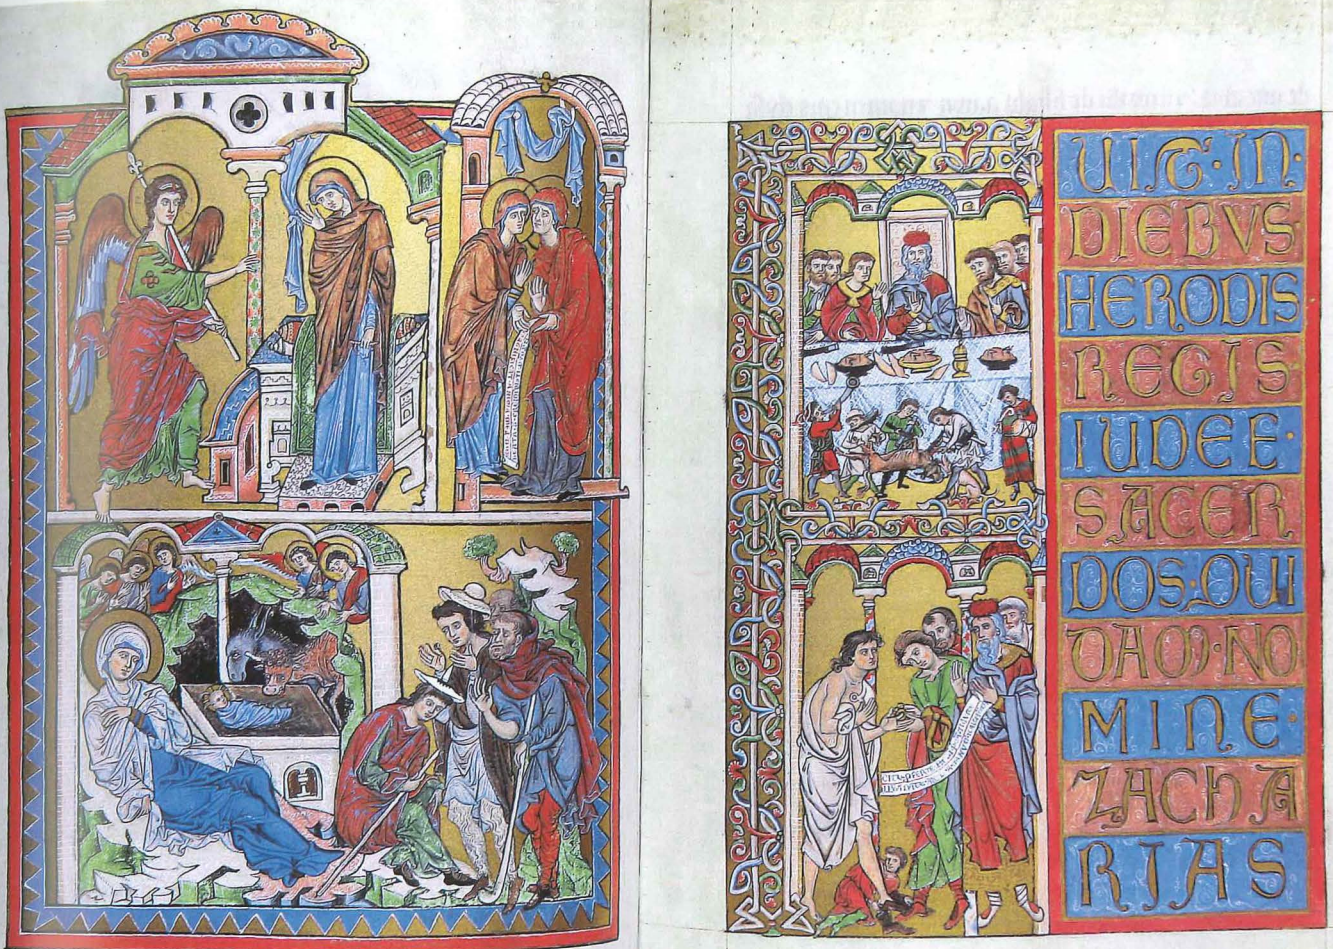 UIG·IN
DIEBVS
HERODIS
REGIS
IUDEE·
SACER
DOS·QUI
DAM·NO
MINE·
ZACHA
RIAS